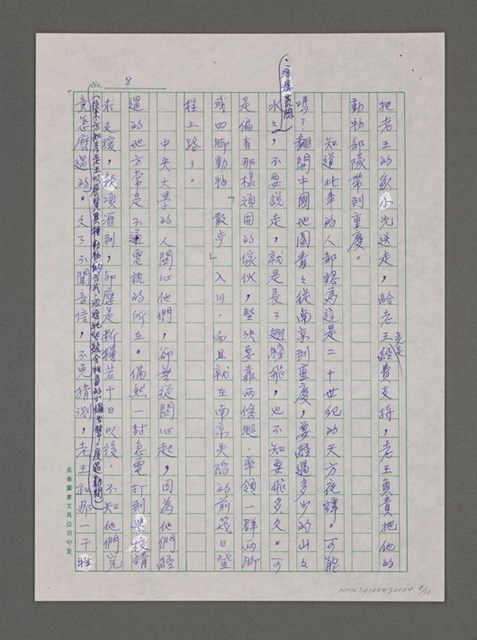 8
把老王的家小先送走，給老王充足經費支持，老王負責把他的
動物部隊帶到重慶。
知道此事的人都認為這是二十世紀的天方夜譚。可能
嗎？翻開中國地圖看看從南京到重慶，要經過多少的山山
水水，不要說走，就是長了翅膀飛，也不知要飛多久。可
是偏有那樣頑固的傢伙，堅決要靠兩條腿，率領一群兩腳
或四腳動物「散步」入川，而且就在南京失陷的前幾日登
程上路了。
中央大學的人關心他們，卻無從關心起，因為他們經
過的地方常是不通電訊的所在。偶然一封急電打到學校請
求支援，款項滙到，卻應是斷糧若干日以後，不知他們究
竟怎麼過的。久久不聞音信，不免猜測，老王和那一干牲
長春圖書文具公司印製